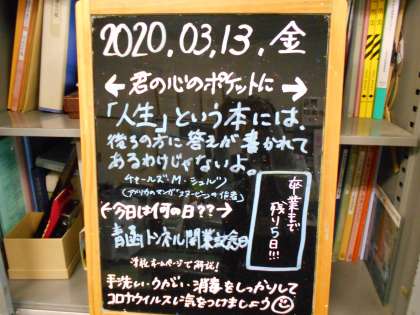 2020.03.13.金
←君の心のポケットに→
「人生」という本には、
後ろの方に答えが書かれて
あるわけじゃないよ。
チャールズ・M・シュルツ
(アメリカのマンガ「スヌーピー」の作者)
←今日は何の日??→
青函トンネル開業記念日
学校ホームページで解説!
手洗い・うがい・消毒をしっかりして
コロナウイルスに気をつけましょう
卒業まで
残り5日!!!